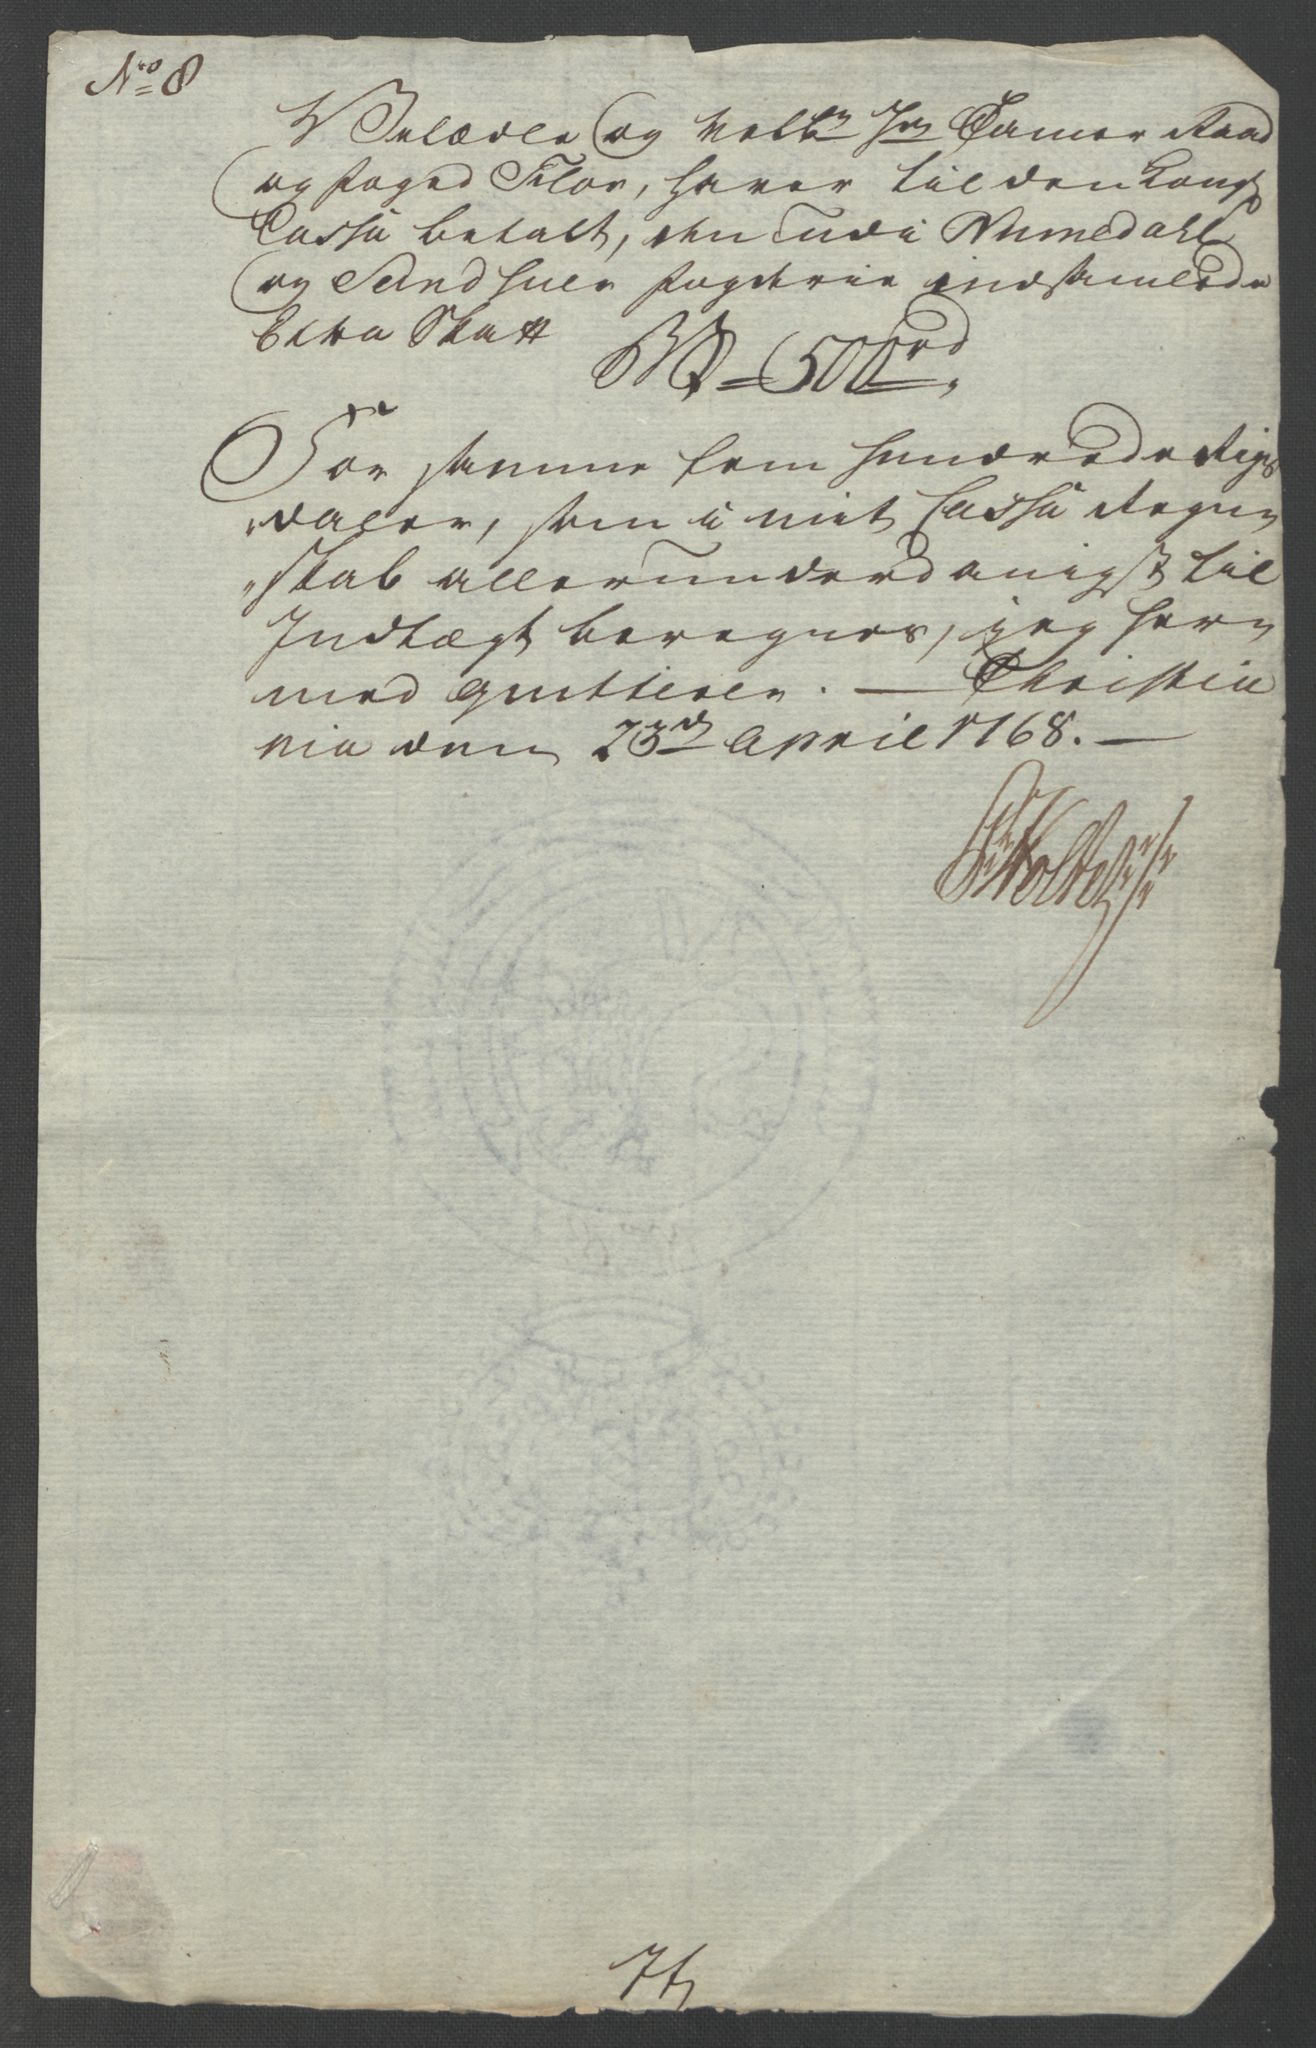 No 8
Velædle og Velbr Hr Camer Raad
og Foged Flor, haver til den Kongl
Cassa betalt, den udi Numedahl
og Sandsuer Fogderie indsamlede
Extra Skatt
Rd = 500rd
For samme fem hundrede Rigs
daler, som i mit Cassa Regn
skab allerunderdanigst til
Indtægt beregnes, jeg her
med qvitterer. — Christia
nia den 23de April 1768. —